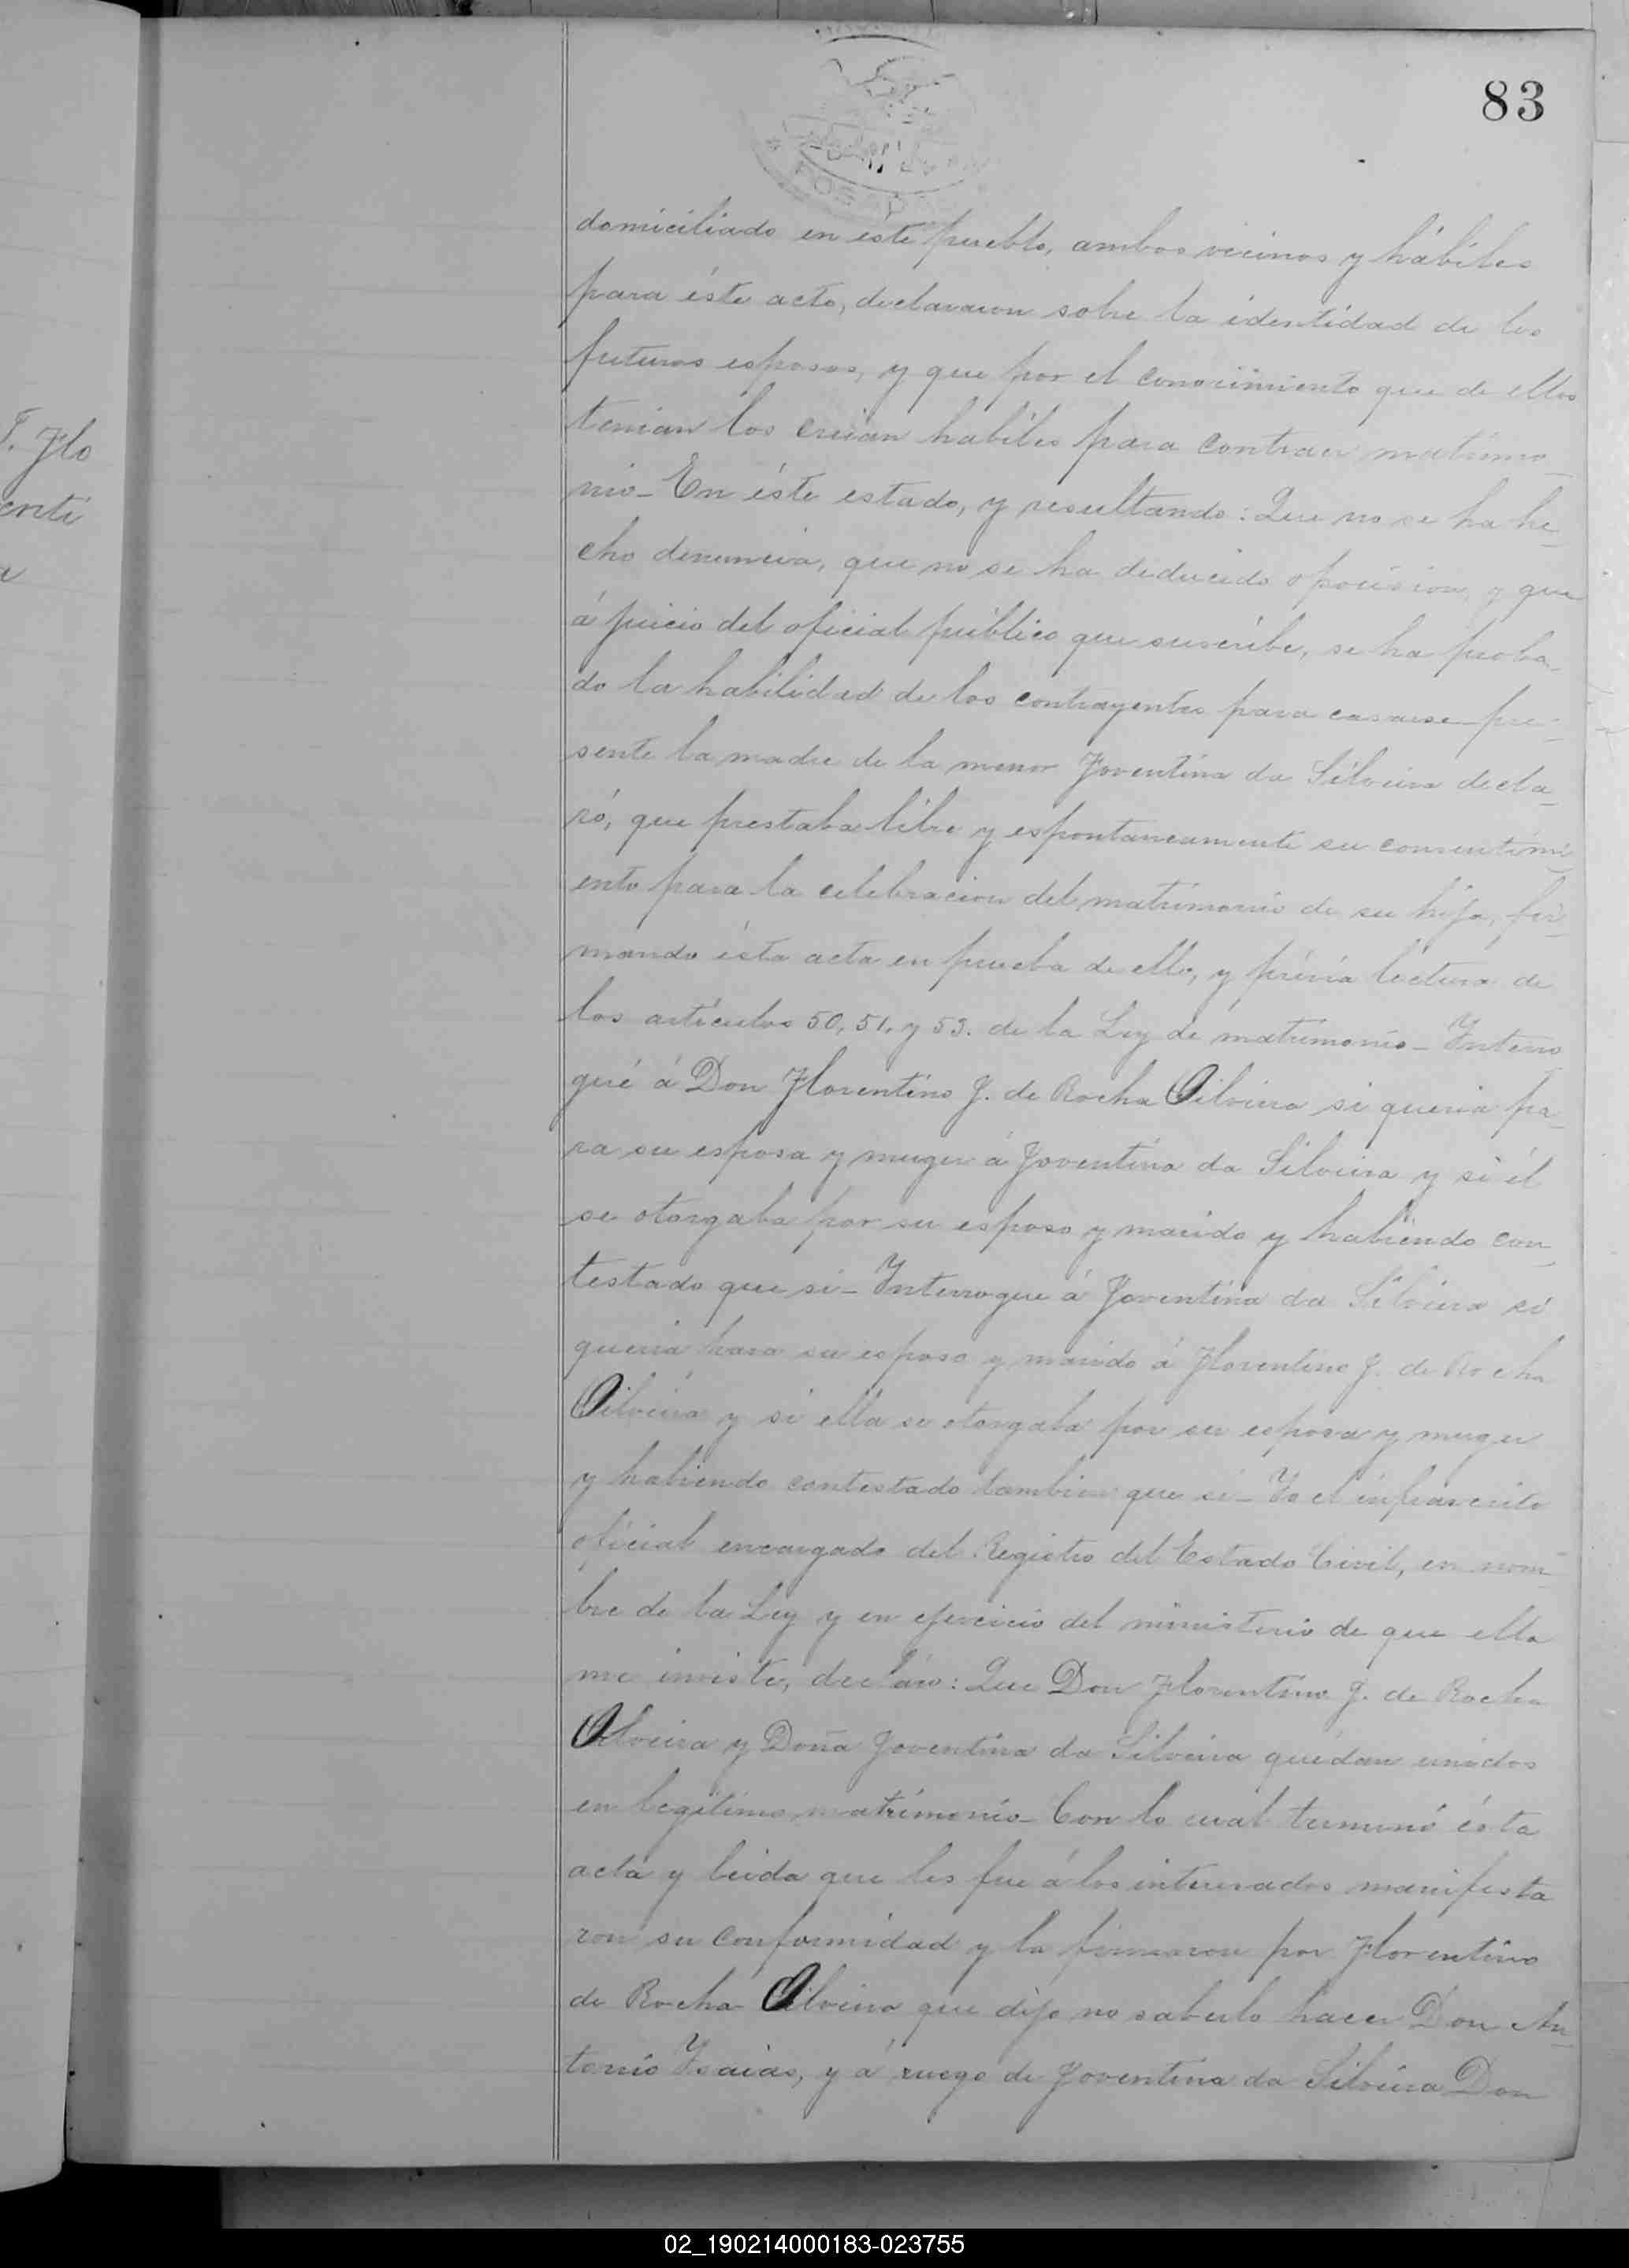 83
POSADAS
domiciliado en éste pueblo, ambos vecinos y hábiles
para éste acto, declararon sobre la identidad de los
futuros esposos, y que por el conocimiento que de ellos
tenian los creian habiles para contraer matrimo_
nio_ En éste estado, y resultando: Que no se ha he_
cho denuncia, que no se ha deducido oposicion, y que
á juicio del oficial público que suscribe, se ha proba_
do la habilidad de los contrayentes para casarse_ pre_
sente la madre de la menor Joventina da Silveira decla_
ró, que prestaba libre y espontaneamente su consentimi_
ento para la celebracion del matrimonio de su hija, fir_
mando ésta acta en prueba de ello, y prévia lectura de
los articulos 50, 51, y 53. de la Ley de matrimonio_ Interro
gué á Don Florentino J. de Rocha Oilveira si queria pa_
ra su esposa y muger á Joventina da Silveira y si él
se otorgaba por su esposo y marido y habiendo con_
testado que si_ Interrogue á Joventina da Silveira si
queria para su esposo y marido á Florentino J. de Rocha
Oilveira y si ella se otorgaba por su esposa y muger
y habiendo contestado tambien que si_ Yo el infrascrito
oficial encargado del Registro del Estado Civil, en nom_
bre de la Ley y en ejercicio del ministerio de que ella
me inviste, declaro: Que Don Florentino J. de Rocha
Oilveira y Doña Joventina da Silveira quedan unidos
en legitimo matrimonio_ Con lo cual terminó ésta
acta y leida que les fue á los interesados manifesta
ron su conformidad y la firmaron por Florentino
de Rocha Oilveira que dijo no saberlo hacer Don An_
tonio Isaias, y á ruego de Joventina da Silveira Don
. Flo
enti
02_190214000183-023755